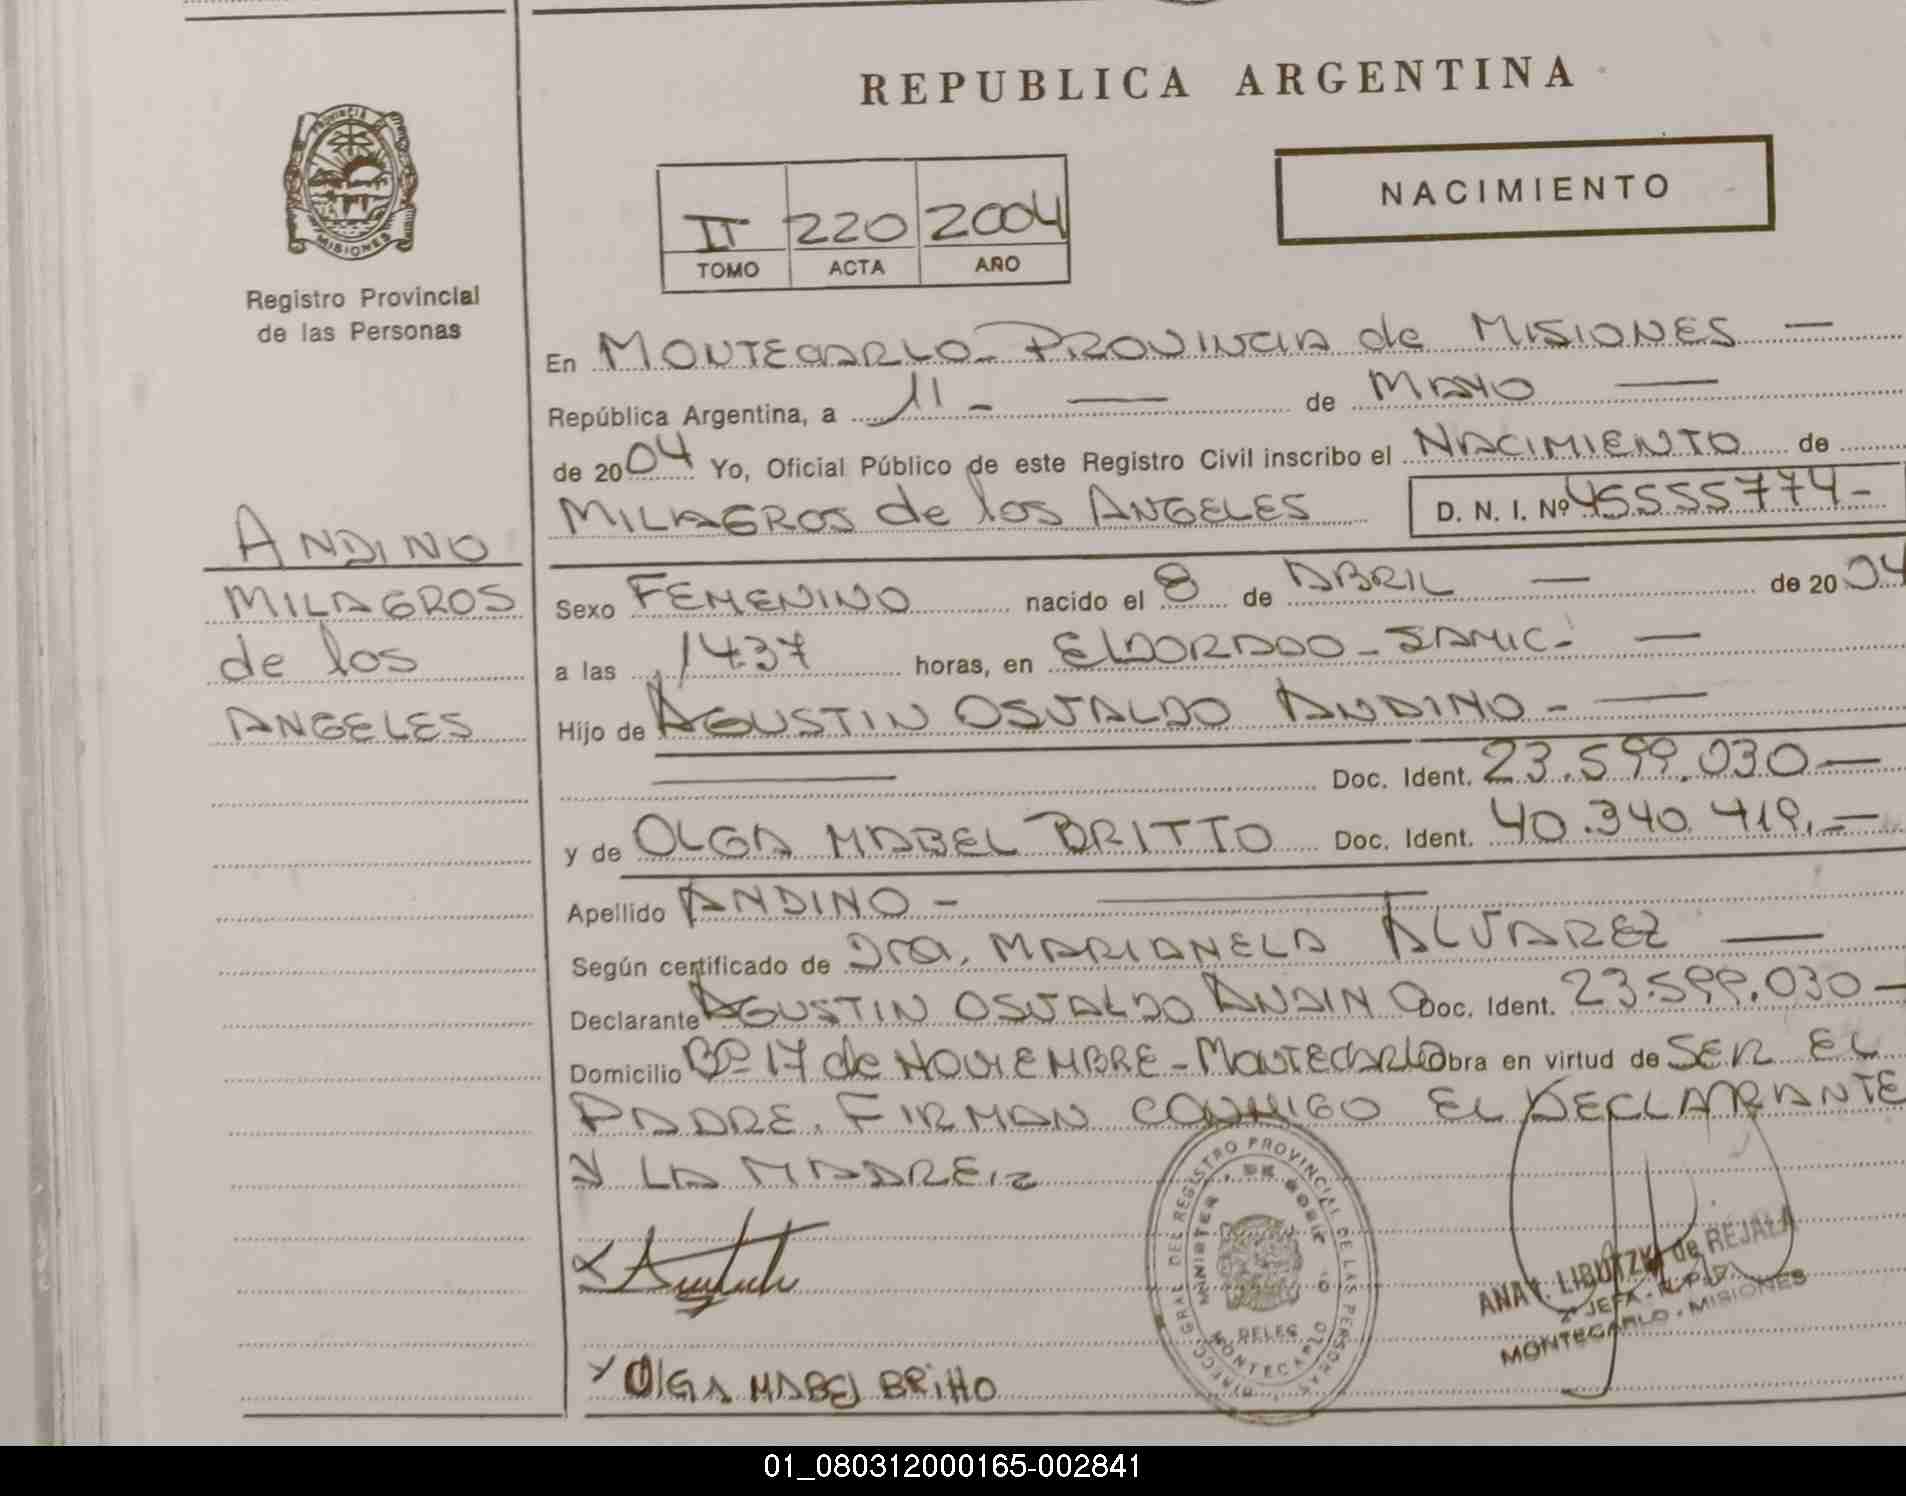 REPUBLICA ARGENTINA
PROVINCIA DE MISIONES
Registro Provincial
de las Personas
II 220 2004
TOMO ACTA AÑO
NACIMIENTO
En MONTECARLO - PROVINCIA de MISIONES —
República Argentina, a 11 - — de MAYO —
de 2004 Yo, Oficial Público de este Registro Civil inscribo el NACIMIENTO de
MILAGROS de los ANGELES D. N. I. Nº 45555774-
ANDINO
MILAGROS
de los
ANGELES
Sexo FEMENINO nacido el 8 de ABRIL — de 2004
a las 1437 horas, en ELDORADO - SAMIC - —
Hijo de AGUSTIN OSVALDO ANDINO - —
— Doc. Ident. 23.599.030 —
y de OLGA MABEL BRITTO Doc. Ident. 40.340.419. —
Apellido ANDINO - —
Según certificado de Dra. MARIANELA ALVAREZ —
Declarante AGUSTIN OSVALDO ANDINO Doc. Ident. 23.599.030 —
Domicilio Bº 17 de NOVIEMBRE - MONTECARLO Obra en virtud de SER EL
PADRE. FIRMAN CONMIGO EL DECLARANTE
Y LA MADRE
OLGA MABEL BRITTO
DIRECC. GRAL. DEL REGISTRO PROVINCIAL DE LAS PERSONAS
MINISTER. DE GOB
DELEG.
MONTECARLO
ANA LIBUTZKI de REJALA
2ª JEFA - R.P.P.
MONTECARLO - MISIONES
01_080312000165-002841